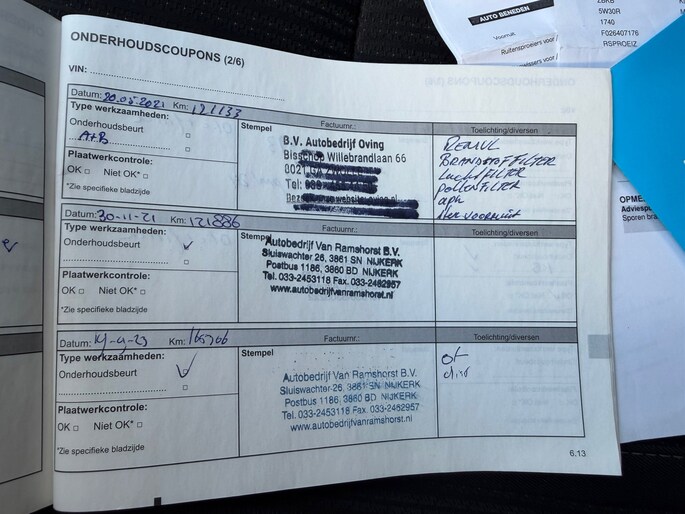 AUTO BENEDEN
5W30R
1740
F026407176
RSPROEIZ
Ruitensproeiers voor /
ONDERHOUDSCOUPONS (2/6)
VIN:
Datum: 20.05.2021 Km: 121133
Type werkzaamheden:
Onderhoudsbeurt
A+B
Plaatwerkcontrole:
OK Niet OK*
*Zie specifieke bladzijde
Stempel
Factuurnr.:
B.V. Autobedrijf Oving
Bisschop Willebrandlaan 66
Tel:
Toelichting/diversen
REMVL
BRANDSTOFFILTER
LUCHTFILTER
POLLENFILTER
apk
Datum: 30-11-21 Km: 121886
Type werkzaamheden:
Onderhoudsbeurt ✓
Plaatwerkcontrole:
OK Niet OK*
*Zie specifieke bladzijde
Stempel
Factuurnr.:
Autobedrijf Van Ramshorst B.V.
Sluiswachter 26, 3861 SN NIJKERK
Postbus 1186, 3860 BD NIJKERK
Tel. 033-2453118 Fax. 033-2462957
www.autobedrijfvanramshorst.nl
Toelichting/diversen
Datum: Km:
Type werkzaamheden:
Onderhoudsbeurt ✓
Plaatwerkcontrole:
OK Niet OK*
*Zie specifieke bladzijde
Stempel
Factuurnr.:
Autobedrijf Van Ramshorst B.V.
Sluiswachter 26, 3861 SN NIJKERK
Postbus 1186, 3860 BD NIJKERK
Tel. 033-2453118 Fax. 033-2462957
www.autobedrijfvanramshorst.nl
Toelichting/diversen
6.13
OPME
Adviesp
Sporen bra